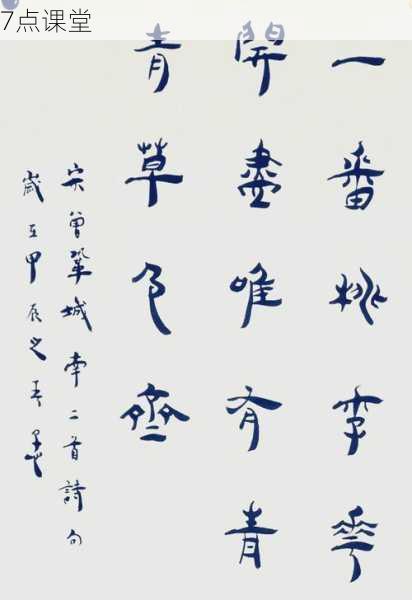 7点课堂
一番桃李華
開盡唯有青
青草色齊
宋曾鞏城南二首詩句
歲在甲辰之春